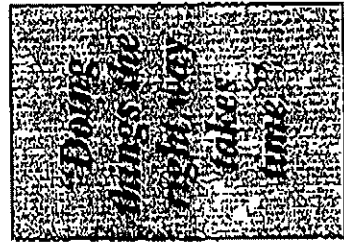 "Doing
things the
right way
takes
time."